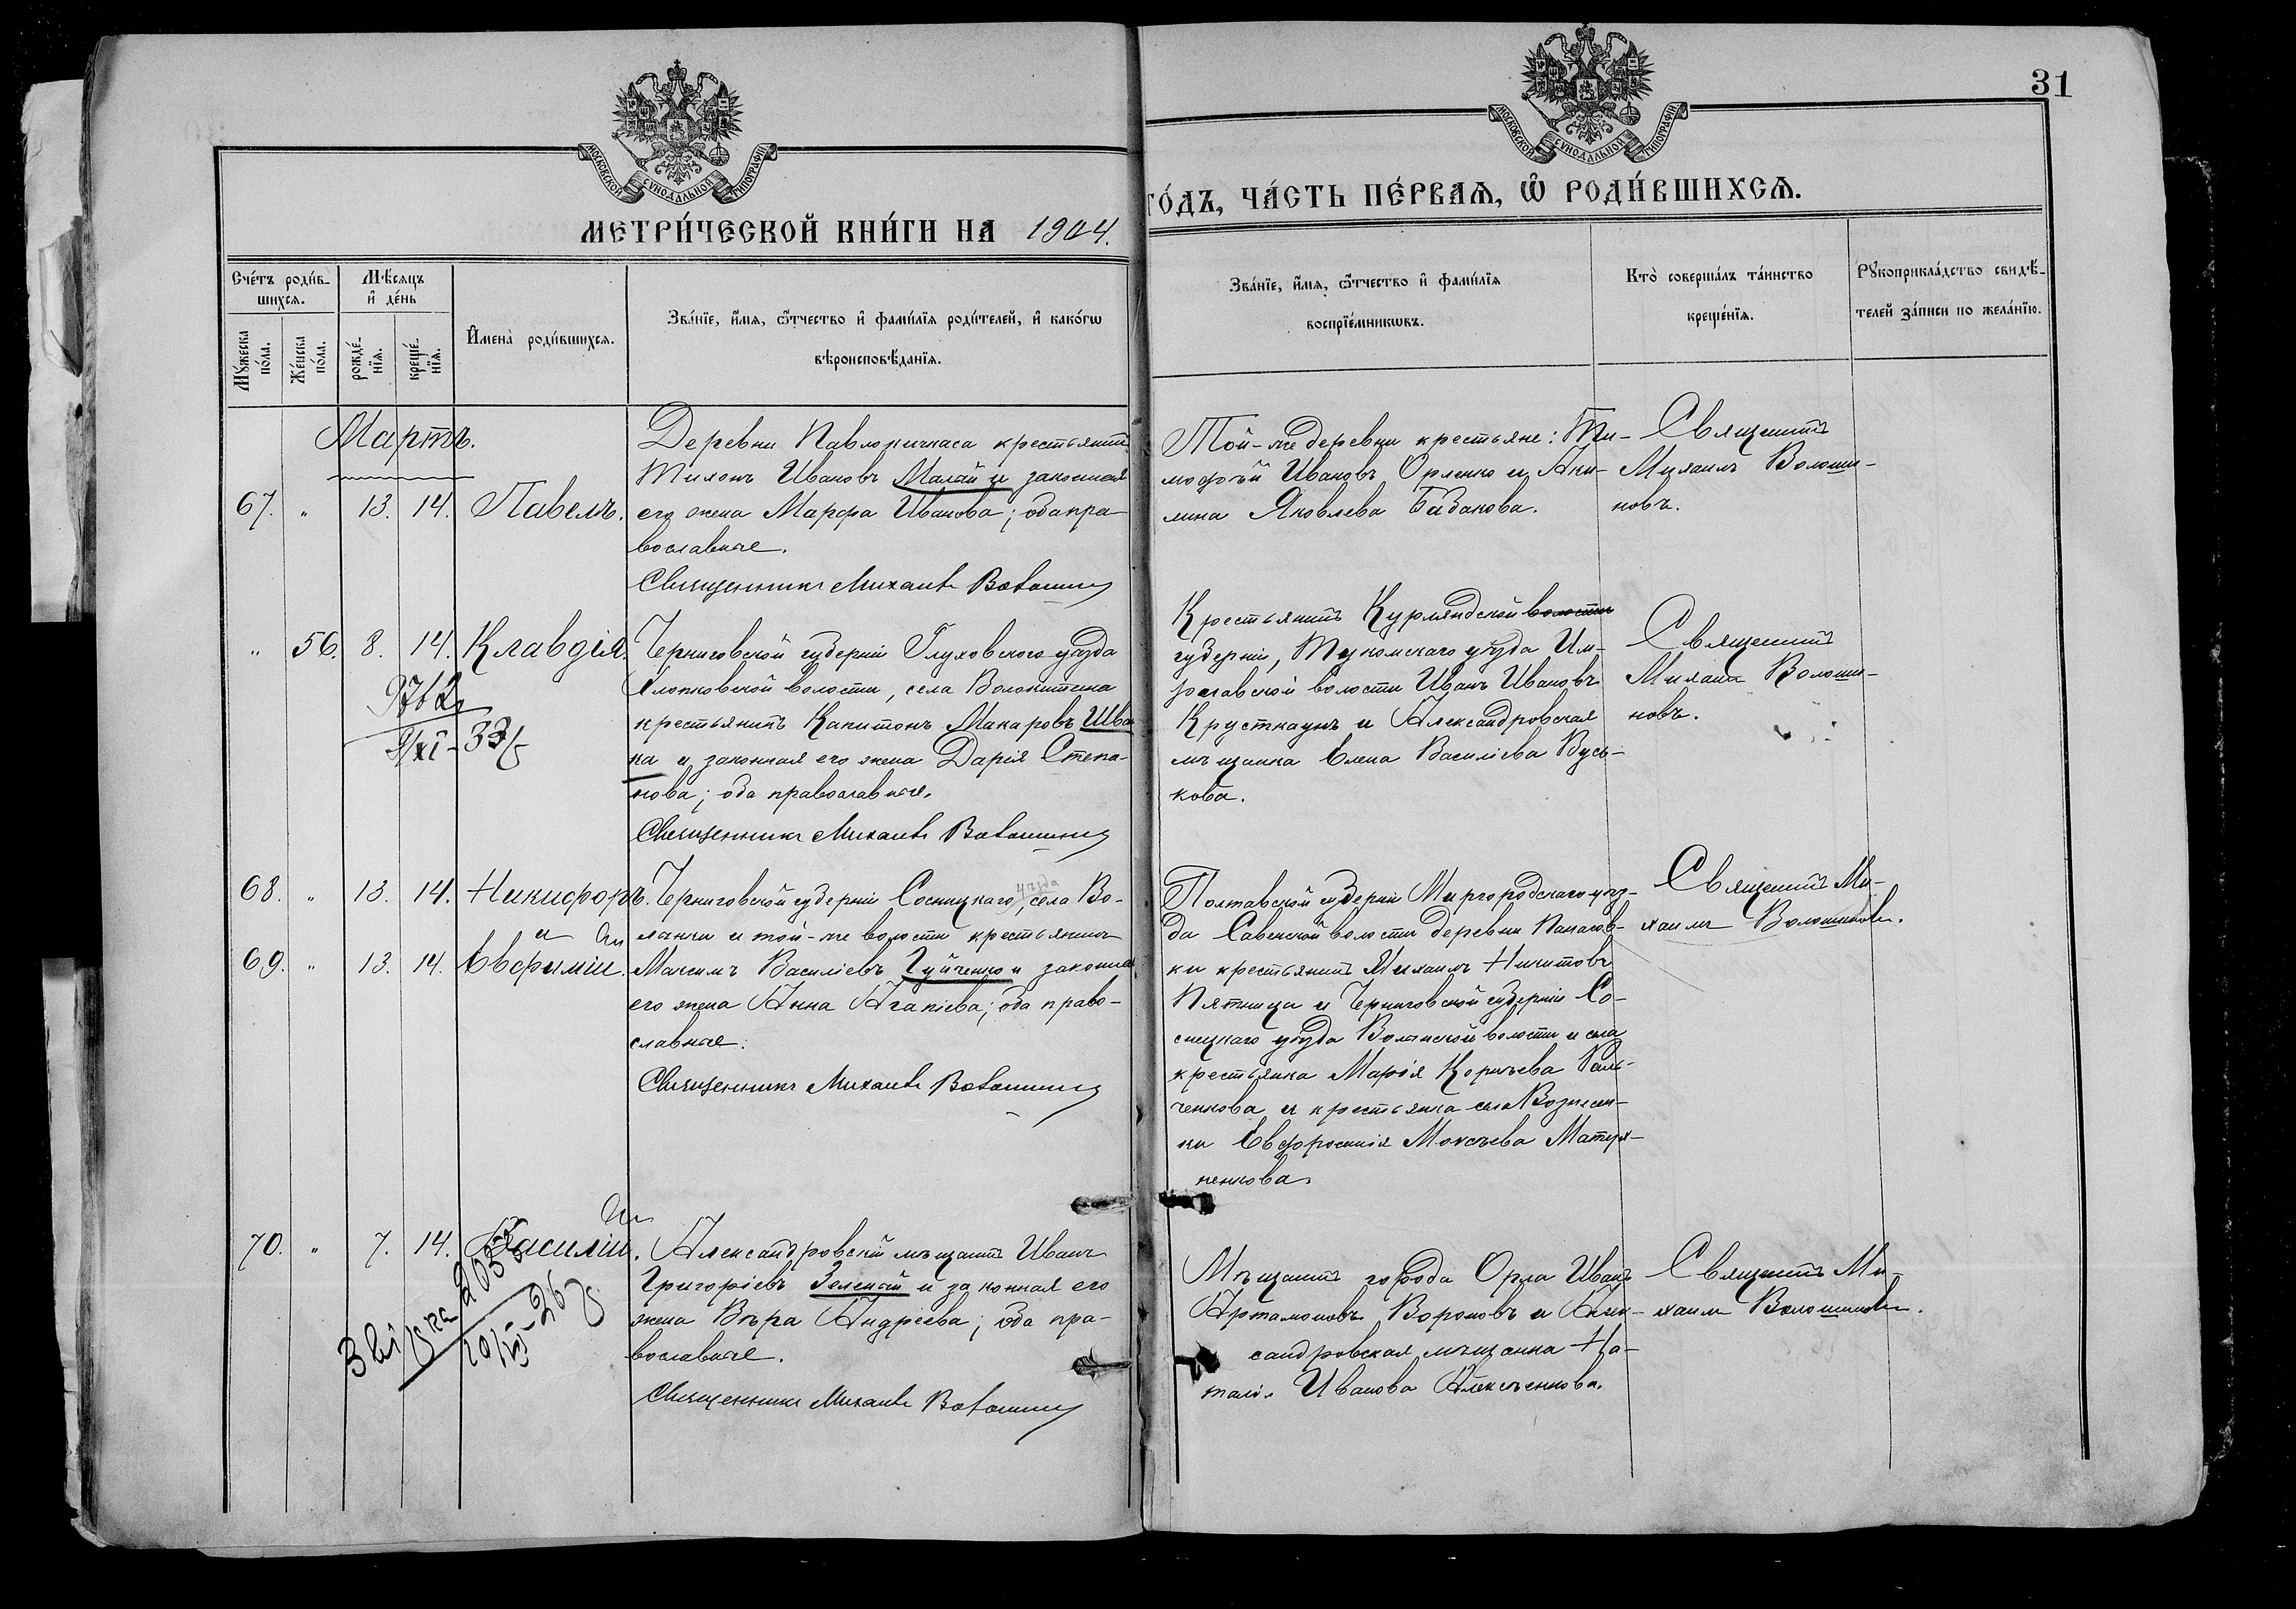 31
МОСКОВСКОЙ СУНОДАЛЬНОЙ ТИПОГРАФІИ
МОСКОВСКОЙ СУНОДАЛЬНОЙ ТИПОГРАФІИ
МЕТРИ́ЧЕСКОЙ КНИ́ГИ НА 1904.
ГО́ДЪ, ЧА́СТЬ ПЕ́РВАѦ, Ѿ РОДИ́ВШИХСѦ.
Сче́тъ роди́в-
шихсѧ.
Мꙋ́жеска по́ла.
Же́нска по́ла.
Мѣ́сѧцъ
и҆ де́нь
рожде́-
нїѧ.
креще́-
нїѧ.
И҆мена̀ роди́вшихсѧ.
Зва́нїе, и҆́мѧ, ѻ҆́тчество и҆ фами́лїѧ роди́телей, и҆ како́гѡ
вѣроисповѣ́данїѧ.
Зва́нїе, и҆́мѧ, ѻ҆́тчество и҆ фами́лїѧ
воспрїе́мникѡвъ.
Кто̀ соверша́лъ та́инство
креще́нїѧ.
Рꙋкоприкла́дство свидѣ́-
телей за́писи по жела́нїю.
Мартъ.
67. " 13. 14. Павелъ.
Деревни Павлокичкаса крестьянинъ
Тихонъ Ивановъ Малай и законная
его жена Марфа Иванова; оба пра-
вославные.
Священникъ Михаилъ Волошинъ
Той-же деревни крестьяне: Ти-
мофѣй Ивановъ Орленко и Аки-
лина Яковлева Бидакова.
Священникъ
Михаилъ Волоши-
новъ.
" 56. 8. 14. Клавдія.
9/XI-33
Черниговской губерніи Глуховского уѣзда
Клопковской волости, села Волокитина
крестьянинъ Капитонъ Макаровъ Шва
ка и законная его жена Дарія Степа-
нова; оба православные.
Священникъ Михаилъ Волошинъ
Крестьянинъ Курляндской волости
губерніи, Тукомскаго уѣзда
волости Иванъ Ивановъ
Крусткаунъ и Александровская
мѣщанка Елена Василіева Вусь-
кова.
Священникъ
Михаилъ Волоши-
новъ.
68. " 13. 14. Никифоръ.
и
69. " 13. 14. Евфимій.
Черниговской губерніи Сосницкаго уѣзда, села Во-
и той-же волости крестьянинъ
Максимъ Василіевъ Гуйченко и законная
его жена Анна Агапіева; оба право-
славные.
Священникъ Михаилъ Волошинъ
Полтавской губерніи Миргородскаго уѣз-
да Савенской волости деревни Панасов-
ки крестьянинъ Михаилъ Никитовъ
Пятница и Черниговской губерніи Со-
сницкаго уѣзда волости и села
крестьянка Марія Корніева
ченкова и крестьянка села Вознесен-
ки Евфросинія Моисѣева Матя-
ненкова.
Священникъ Ми-
хаилъ Волошиновъ.
70. " 7. 14. Василій.
2053
Звірка
10/III-26
Александровскій мѣщанинъ Иванъ
Григоріевъ Зеленый и законная его
жена Вѣра Андреева; оба пра-
вославные.
Священникъ Михаилъ Волошинъ
Мѣщанинъ города Орла Иванъ
Артамоновъ Вороновъ и Алек-
сандровская мѣщанка На-
талія Иванова Алексѣенкова.
Священникъ Ми-
хаилъ Волошиновъ.